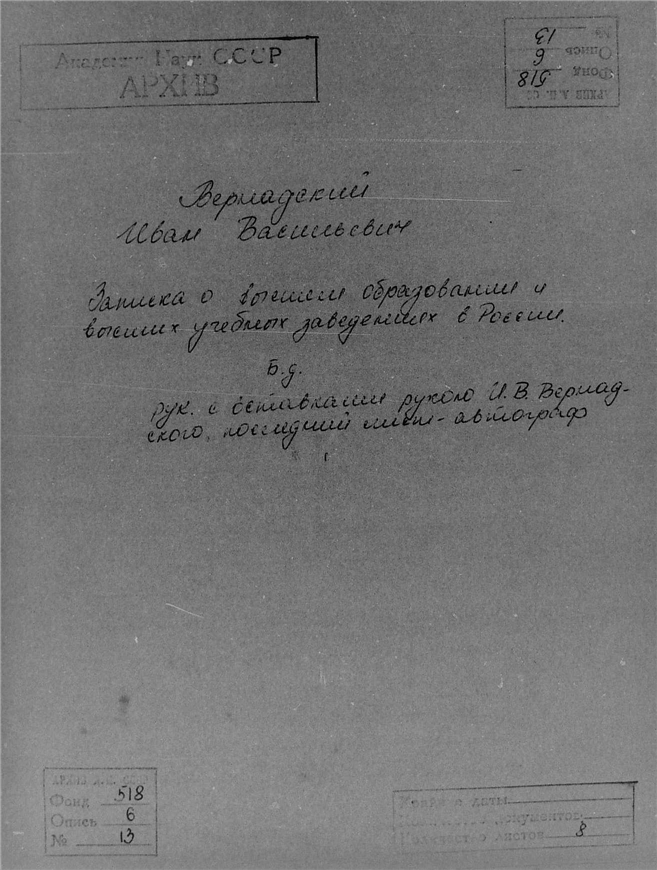 Академия Наук СССР
АРХИВ
№ 13
Опись 6
Фонд 518
АРХИВ А.Н. СС
Вернадский
Иван Васильевич
Записка о высшем образовании и
высших учебных заведениях в России.
Б.д.
рук. с вставками рукою И.В. Вернад-
ского, последний лист - автограф
АРХИВ А.Н. СССР
Фонд 518
Опись 6
№ 13
Крайние даты
документов
Количество листов 8